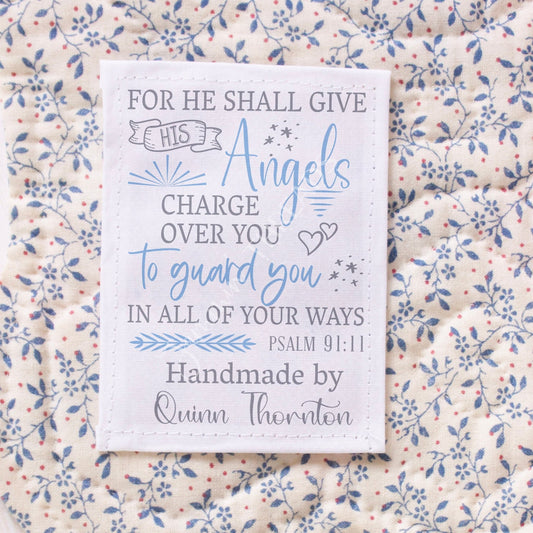 FOR HE SHALL GIVE
HIS Angels
CHARGE
OVER YOU
To guard you
IN ALL OF YOUR WAYS
PSALM 91:11
Handmade by
Quinn Thornton